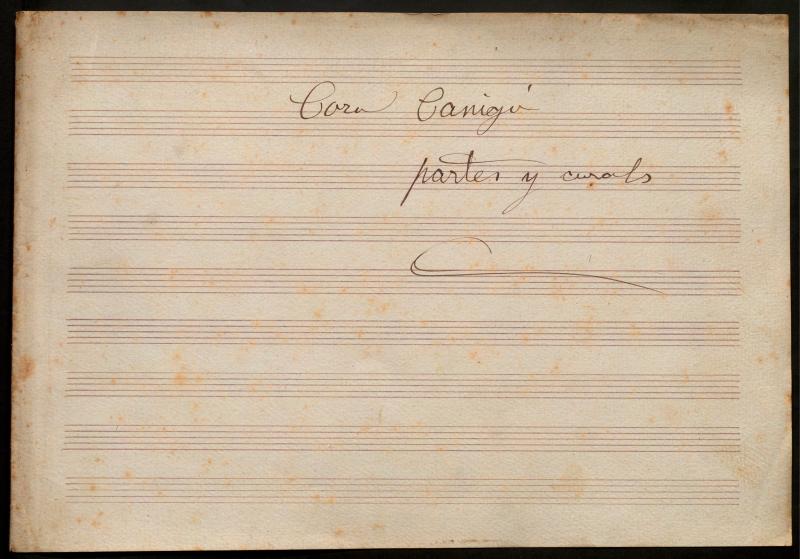 Cora Canigú
partes y curals